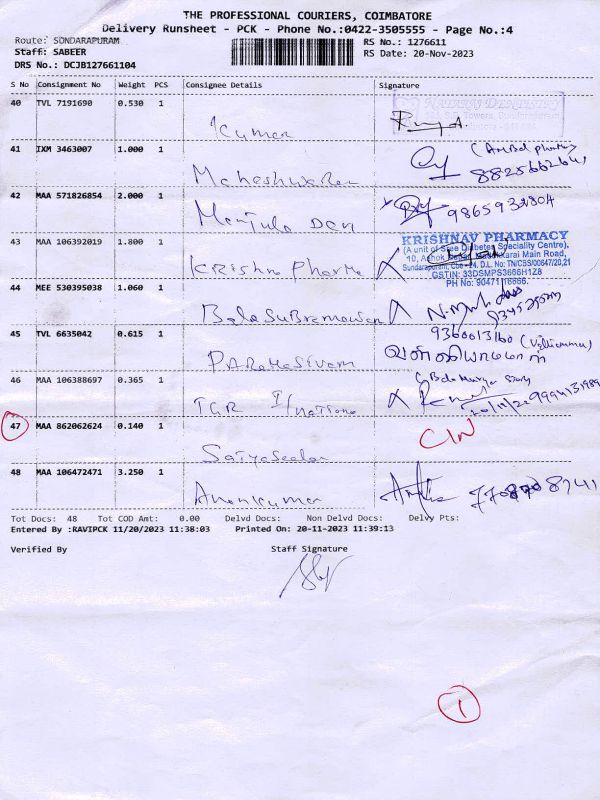 THE PROFESSIONAL COURIERS, COIMBATORE
Delivery Runsheet - PCK - Phone No.:0422-3505555 - Page No.:4
Route: SUNDARAPURAM
RS No.: 1276611
Staff: SABEER
RS Date: 20-Nov-2023
DRS No.: DCJB127661104
S No Consignment No Weight PCS Consignee Details Signature
40 TVL 7191690 0.530 1
Kumar
41 IXM 3463007 1.000 1
Maheshwaran
42 MAA 571826854 2.000 1
Manjula Devi 9865932804
43 MAA 106392019 1.800 1
Krishna Pharma
KRISHNAV PHARMACY
(A unit of Sree Diabetes Speciality Centre),
10, Ashok Nagar, Madukkarai Main Road,
Sundarapuram, Cbe - 24. D.L. No: TN/CBS/00647/20,21
GSTIN: 33DSMPS3666H1Z8
PH No: 90471 16666.
44 MEE 530395038 1.060 1
Balasubramanian
45 TVL 6635042 0.615 1
9360013160 (Valliammal)
Paramasivam வள்ளியம்மாள்
46 MAA 106388697 0.365 1
TGR
47 MAA 862062624 0.140 1
CIN
Satyaseelan
48 MAA 106472471 3.250 1
Anankumar
Tot Docs: 48 Tot COD Amt: 0.00 Delvd Docs: Non Delvd Docs: Delvy Pts:
Entered By :RAVIPCK 11/20/2023 11:38:03 Printed On: 20-11-2023 11:39:13
Verified By Staff Signature
1